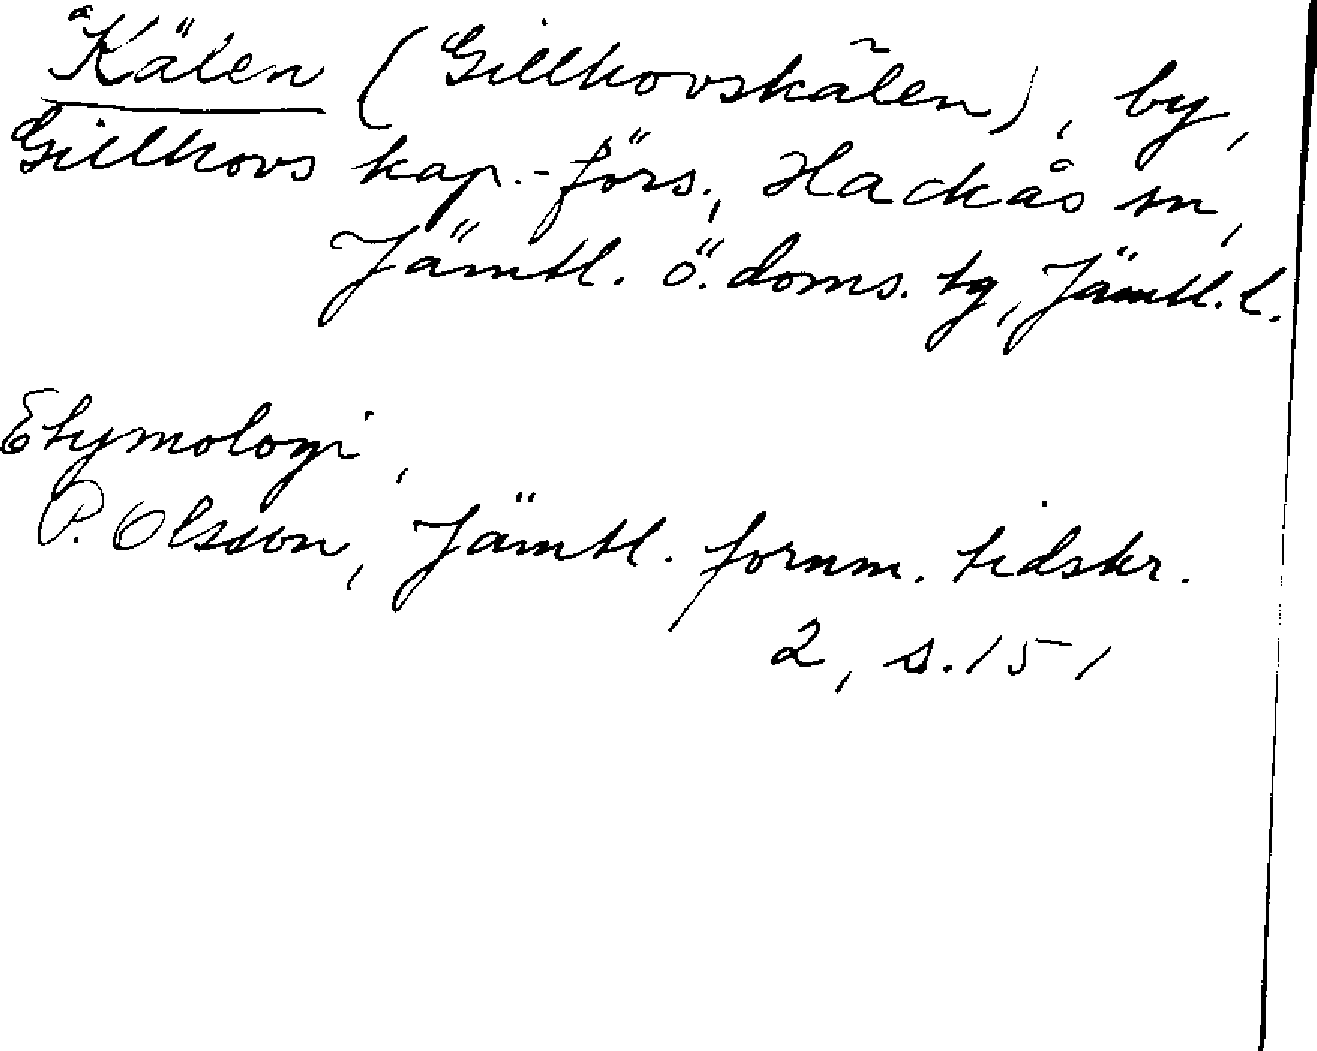 Kälen (Gillhovskälen), by,
Gillhovs kap.-förs., Hackås sn,
Jämtl. ö. doms. tg, Jämtl. l.
Etymologi,
P. Olsson, Jämtl. fornm. tidskr.
2, s. 151